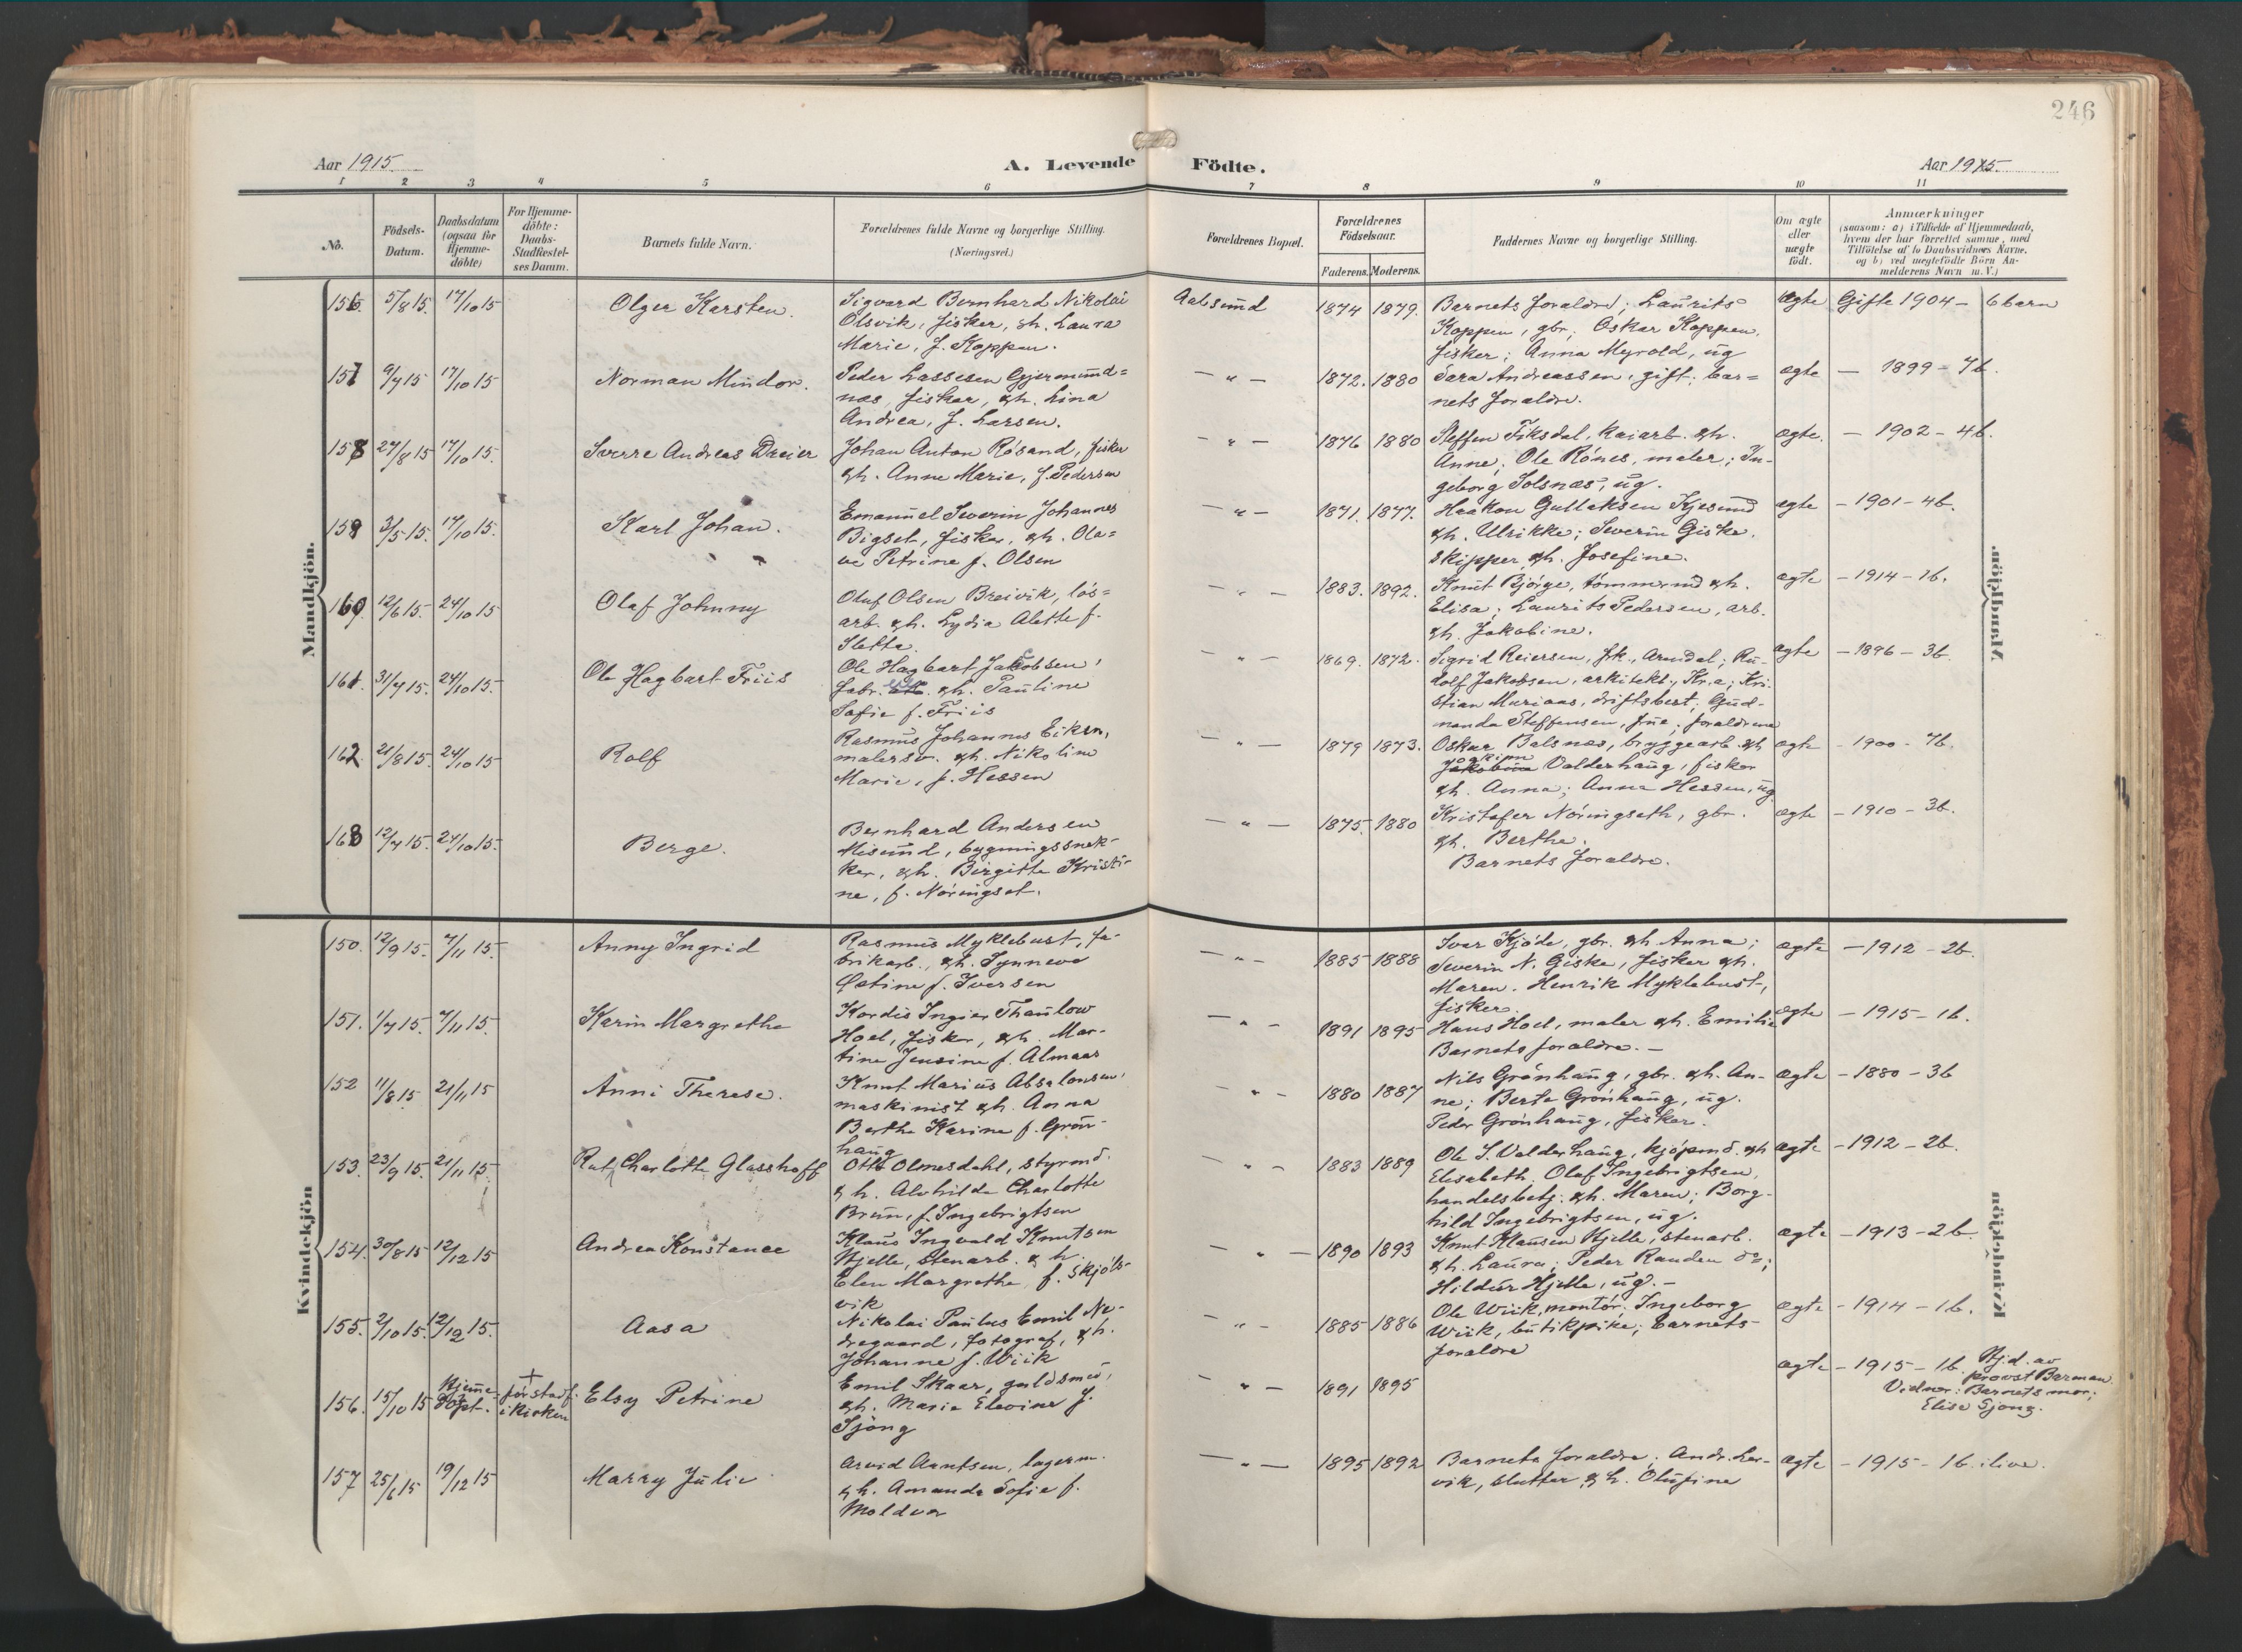 246
Aar 1915.
A. Levende Födte.
Aar 1915.
1 2 3 4 5 6 7 8 9 10 11
No.
Födsels-Datum.
Daabsdatum (ogsaa for Hjemme-döbte)
For Hjemme-döbte: Daabs-Stadfestel-ses Datum.
Barnets fulde Navn.
Forældrenes fulde Navne og borgerlige Stilling. (Næringsvei.)
Forældrenes Bopæl.
Forældrenes Födselsaar.
Faderens. Moderens.
Faddernes Navne og borgerlige Stilling.
Om ægte eller uægte födt.
Anmærkninger
(saasom: a) i Tilfælde af Hjemmedaab, hvem der har forrettet samme, med Tilföielse af to Daabsvidners Navne, og b) ved uægtefödte Börn An-melderens Navn m. V.)
Mandkjön.
156 5/8 15. 17/10 15 Olger Karsten.
Sigvard Bernhard Nikolai
Olsvik, fisker, gh. Laura
Marie, f. Koppen.
Aalesund 1874 1879.
Barnets foraldre; Laurits
Koppen, gbr; Oskar Koppen,
fisker; Anna Myrold, ug
ægte Gifte 1904 - 6 barn
157 9/7 15 17/10 15 Norman Mindor.
Peder Lassesen Gjermund=
nes, fisker, gh. Lina
Andrea, f. Larsen.
- " - 1872. 1880
Sara Andreassen, gift; bar=
nets foraldre.
ægte - 1899 - 7b.
158 27/8 15 17/10 15. Sverre Andreas Dreier
Johan Anton Rösand, fisker
gh. Anne Marie, f. Pedersen
- " - 1876 1880
Steffen Fiksdal, kaiarb. gh.
Anne; Ole Rönes, maler; In-
geborg Solsnæs, ug.
ægte. - 1902 - 4b.
159 3/5 15. 17/10 15. Karl Johan.
Emanuel Severin Johannes
Bigset, fisker, gh. Ola=
ve Petrine f. Olsen
- " - 1871. 1877.
Haakon Gullaksen Kjesund
gh. Ulrikke; Severin Giske,
skipper gh. Josefine.
ægte - 1901 - 4b.
160 12/6 15. 24/10 15 Olaf Johnny
Oluf Olsen Breivik, lös=
arb. gh. Lydia Alette f.
Slette.
- " - 1883. 1892.
Knut Bjórge, tömmermd gh.
Elisa; Laurits Pedersen, arb.
gh. Jakobine.
ægte - 1914 - 1b.
161 31/7 15. 24/10 15. Ole Hagbart Friis
Ole Hagbart Jakobsen,
fabr. gh. Pauline
Sofie f. Friis
- " - 1869. 1872.
Sigrid Reiersen, frk., Arendal; Ru-
dolf Jakobsen, arkitekt, Kr.a; Kri-
stian Mariaas, driftsbest; Gud-
nanda Steffensen, frue; foraldrene
ægte - 1896 - 3b.
162 21/8 15. 24/10 15 Rolf
Rasmus Johannes Eiksn,
malersv. gh. Nikoline
Marie, f. Hessen
- " - 1879 1873.
Oskar Balsnes, bryggearb. gh
Joakim Valderhaug, fisker
gh. Anna; Anna Hessen, ug
ægte - 1900 - 7b.
163 12/7 15. 24/10 15. Berge.
Bernhard Andersen
Misund, bygningssnek-
ker, gh. Birgitte Kristi-
ne, f. Nöringset.
- " - 1875. 1880
Kristofer Nöringseth, gbr.
gh. Berthe.
Barnets foraldre.
ægte - 1910 - 3b.
Mandkjön.
Kvindekjön
150. 12/9 15. 7/11 15. Anny Ingrid
Rasmus Myklebust, fa-
brikarb., gh. Synneve
Ostine f. Iversen
- " - 1885 1888
Ivar Kjöde, gbr. gh Anna;
Severin N. Giske, fisker gh.
Maren. Henrik Myklebust,
fisker.
ægte - 1912 - 2b.
151. 1/7 15. 7/11 15. Karin Margrethe
Kordis Ingier Thaulow
Hoel, fisker, gh. Mar-
tine Jensine f. Almaas
- " - 1891 1895
Hans Hoel, maler gh. Emilie
Barnets foraldre. -
ægte - 1915 - 1b.
152 11/8 15 21/11 15 Anni Therese.
Knut Marius Absalonsen,
maskinist gh. Anna
Berthe Karine f. Grön-
haug
" - 1880 1887
Nils Grönhaug, gbr. gh. An-
ne; Berte Grönhaug, ug.
Peder Grönhaug, fisker.
ægte - 1880 - 3b
153. 23/9 15. 21/11 15. Rut Charlotte Glasshoff
Otto Olmesdahl, styrmd.
gh. Alvhilde Charlotte
Brun, f. Ingebrigtsen
- " - 1883 1889
Ole S. Valderhaug, kjöpmd. gh
Elisabeth. Olaf Ingebrigtsen,
handelsbetj. gh. Maren; Borg-
hild Ingebrigtsen, ug.
ægte - 1912 - 2b.
154. 30/8 15 12/12 15 Andrea Konstance
Klaus Ingvald Knutsen
Hjelle, stenarb. gh.
Elen Margrethe, f. Skjöls-
vik
- " - 1890 1893
Knut Klausen Hjelle, stenarb.
gh. Laura; Peder Randen do;
Hildur Hjelle, ug. -
ægte - 1913 - 2b.
155. 2/10 15. 12/12 15. Aasa
Nikolai Paulus Emil Ne-
dregaard, fotograf, gh.
Johanne f. Wiik
- " - 1885 1886
Ole Wiik, montör; Ingeborg
Wiik, butikpike; barnets
foraldre
ægte - 1914 - 1b.
156. 15/10 15 Hjeme=döpt. + för stadf. i kirken Elsy Petrine
Emil Skaar, guldsmed,
gh. Marie Elevine f.
Sjong
- " - 1891 1895
ægte - 1915 - 1b. Hj.d. av
provst Barman.
Vidner: Barnets mor;
Elise Sjong.
157 25/6 15 19/12 15 Marry Julie
Arvid Arntsen, lagerm.
gh. Amanda Sofie f.
Moldvær
- " - 1895 1892
Barnets foraldre; Andr. Ler-
vik, slutter, gh. Olufine
ægte - 1915 - 1b. ilive.
Kvindekjön